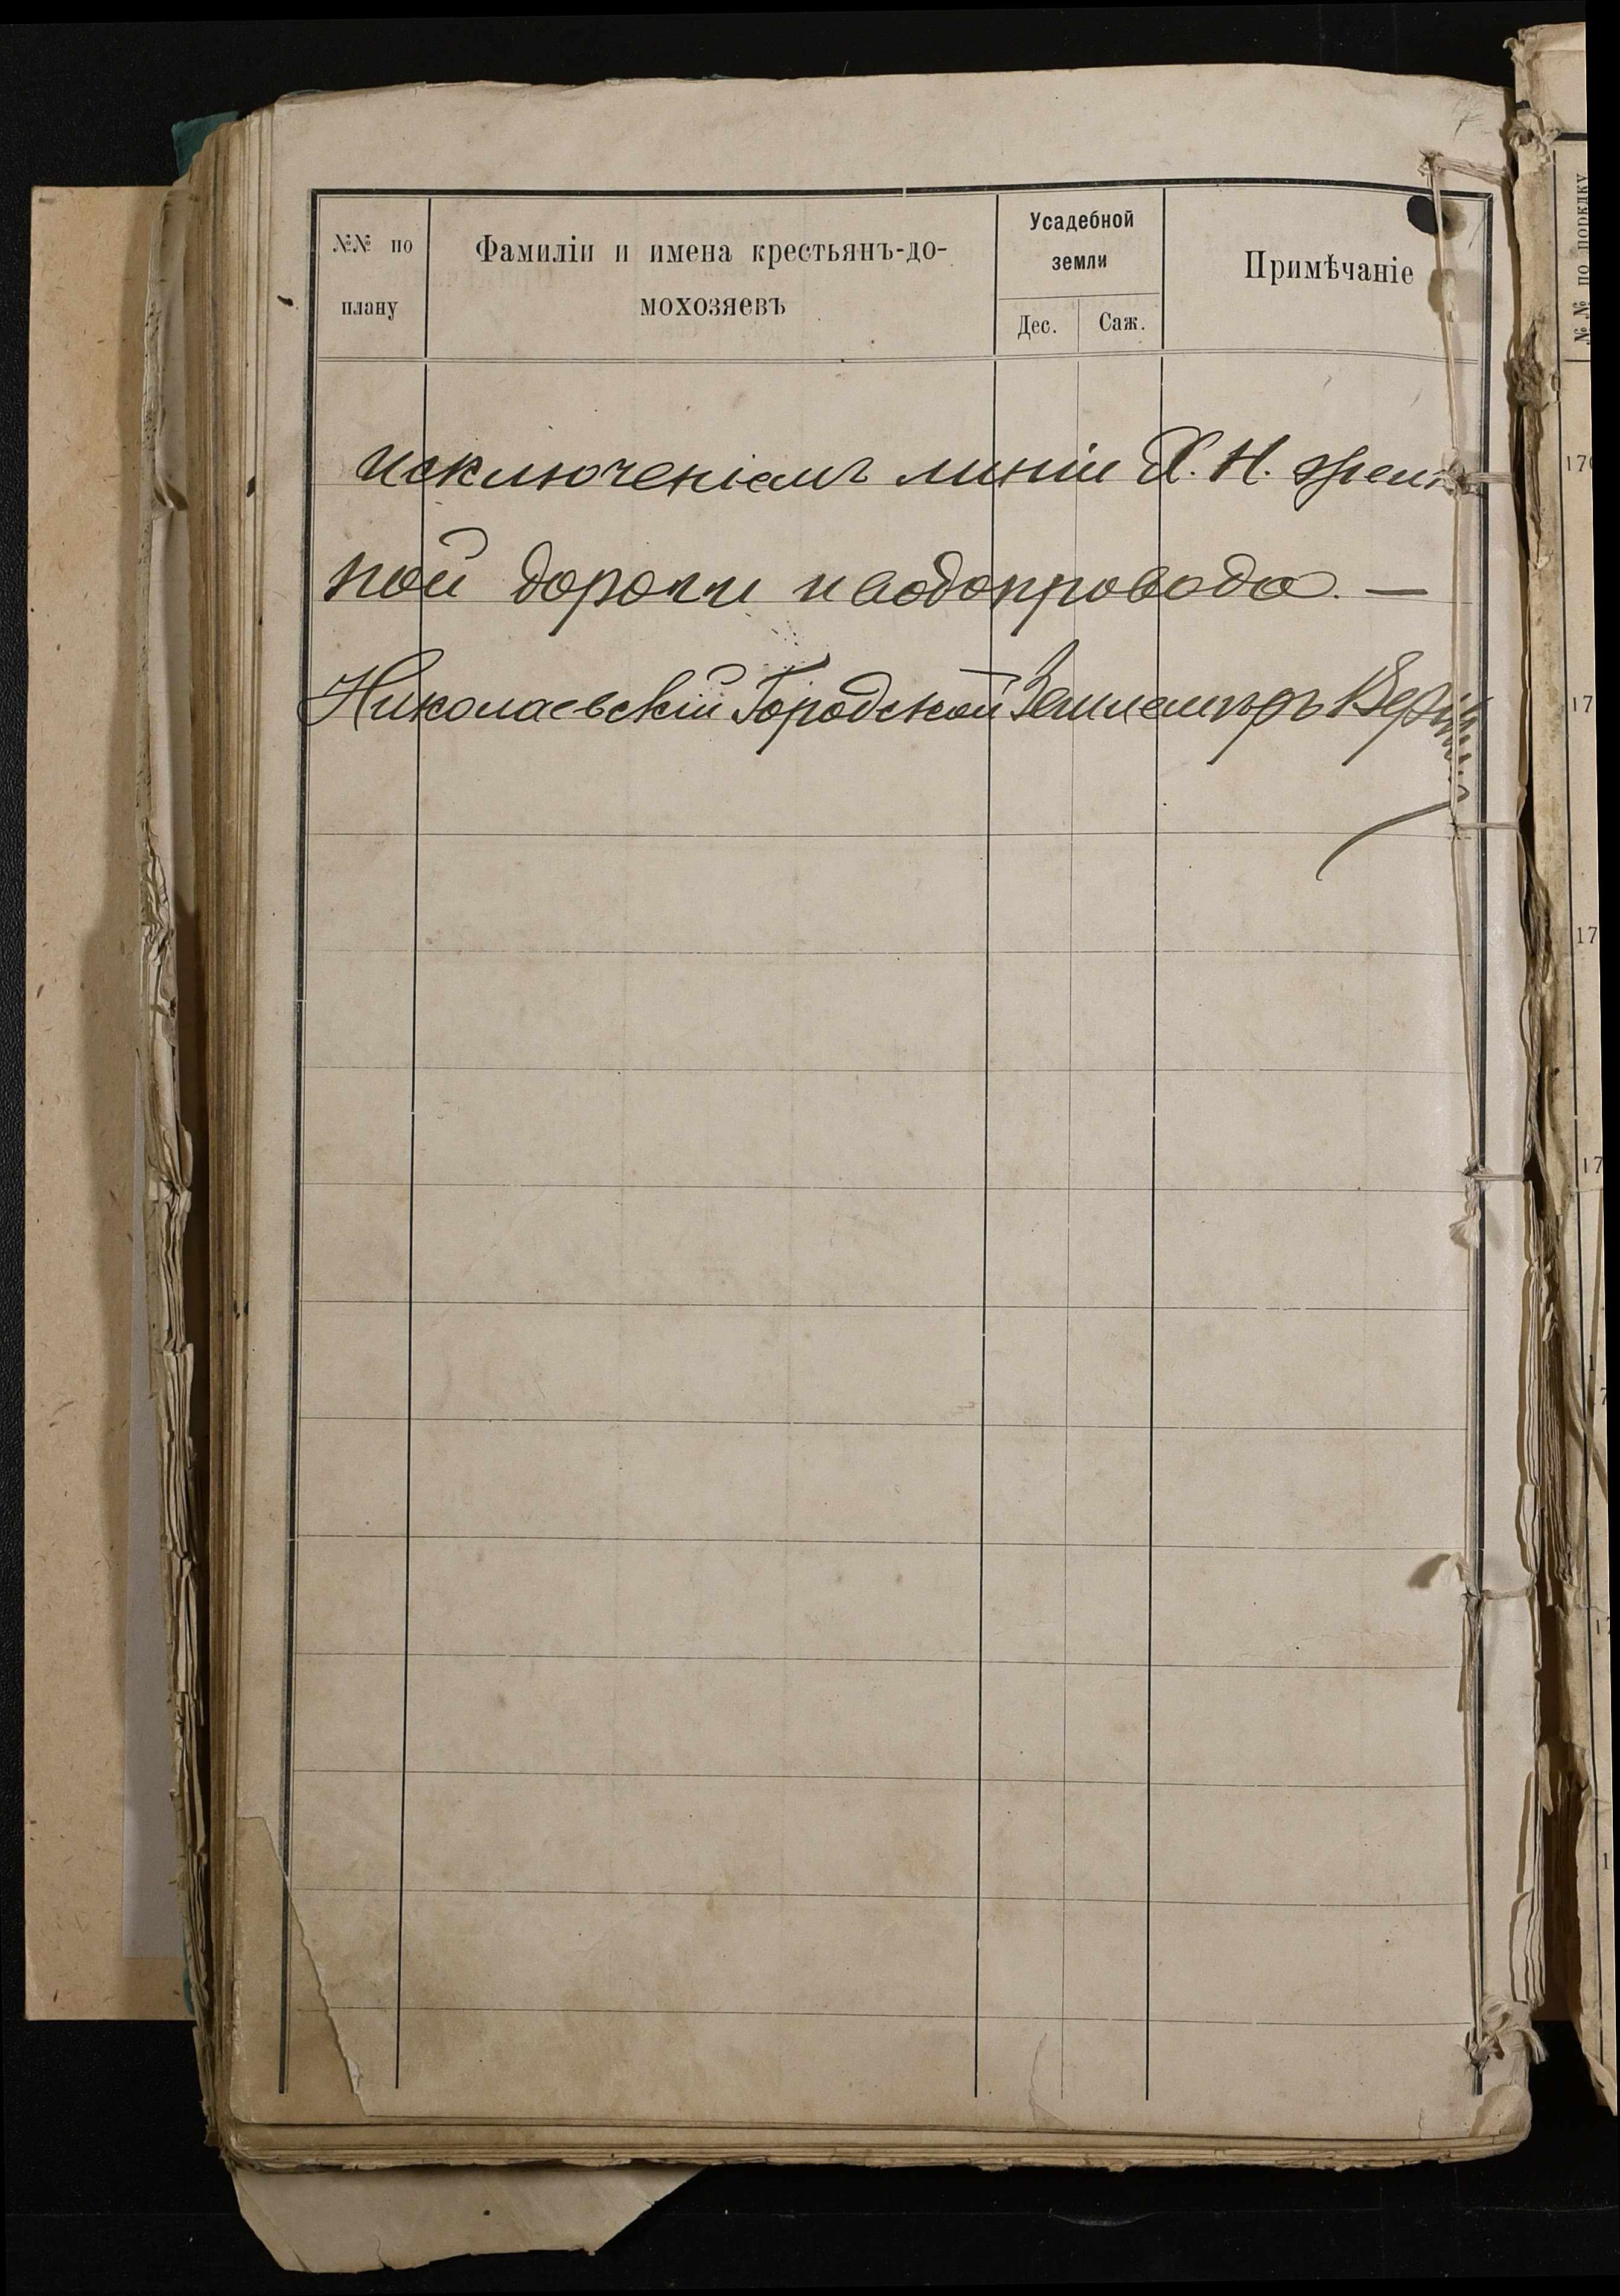 №№ по плану
Фамиліи и имена крестьянъ-до-
мохозяевъ
Усадебной
земли
Дес.
Саж.
Примѣчаніе
исключеніемъ линіи Х. Н. желѣз
ной дороги и водопровода. —
Николаевскій Городской Землемѣръ
№№ по порядку
17
17
17